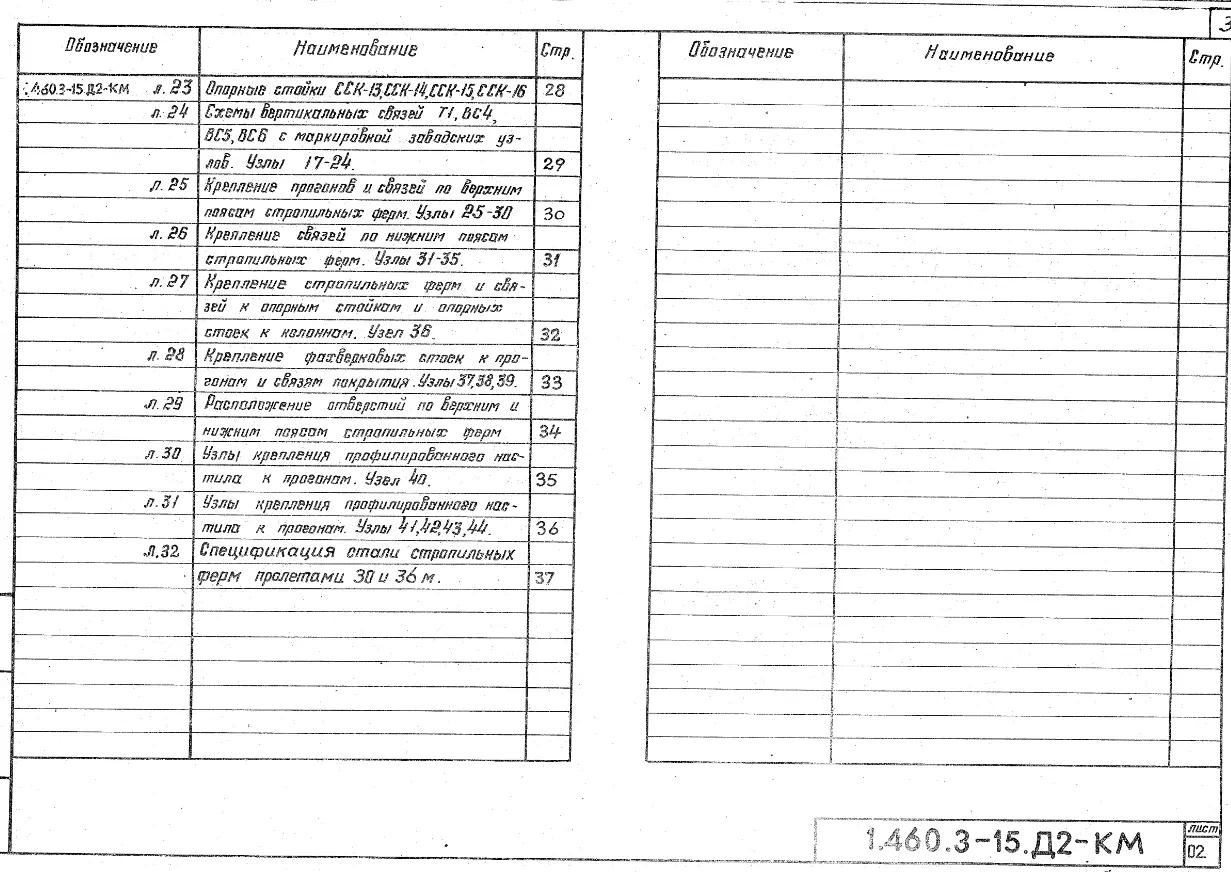 3
Обозначение Наименование Стр.
1.460.3-15.Д2-КМ л. 23 Опорные стойки ССК-13,ССК-14,ССК-15,ССК-16 28
л. 24 Схемы вертикальных связей Т1, ВС4,
ВС5, ВС6 с маркировкой заводских уз-
лов. Узлы 17-24. 29
л. 25 Крепление прогонов и связей по верхним
поясам стропильных ферм. Узлы 25-30 30
л. 26 Крепление связей по нижним поясам
стропильных ферм. Узлы 31-35. 31
л. 27 Крепление стропильных ферм и свя-
зей к опорным стойкам и опорных
стоек к колоннам. Узел 36. 32
л. 28 Крепление фахверковых стоек к про-
гонам и связям покрытия. Узлы 37,38,39. 33
л. 29 Расположение отверстий по верхним и
нижним поясам стропильных ферм 34
л. 30 Узлы крепления профилированного нас-
тила к прогонам. Узел 40. 35
л. 31 Узлы крепления профилированного нас-
тила к прогонам. Узлы 41,42,43,44. 36
Л.32 Спецификация стали стропильных
ферм пролетами 30 и 36 м. 37
Обозначение Наименование Стр.
1.460.3-15.Д2-КМ
лист
02